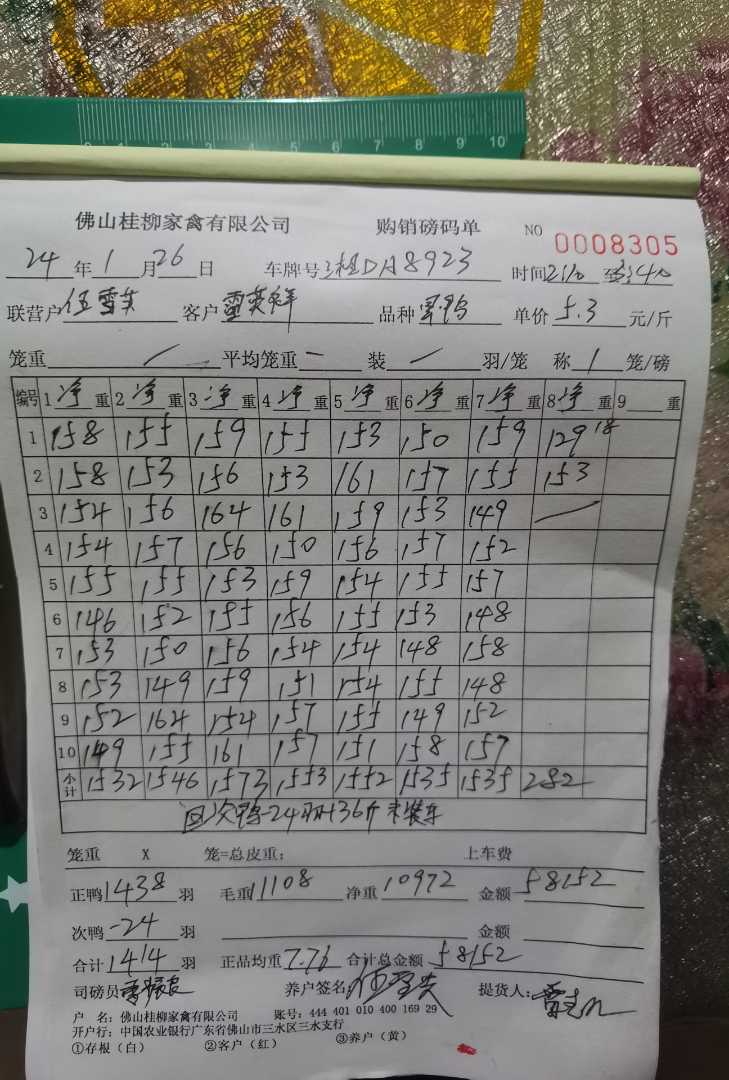 0 1 2 3 4 5 6 7 8 9 10
佛山桂柳家禽有限公司 购销磅码单 NO 0008305
24年1月26日 车牌号 桂DA8923 时间
联营户 伍雪英 客户 雷英鲜 品种 单价 5.3 元/斤
笼重 / 平均笼重 一 装 / 羽/笼 称 1 笼/磅
编号 1净重 2净重 3净重 4净重 5净重 6净重 7净重 8净重 9 重
1 158 155 159 155 153 150 159 129 18
2 158 153 156 153 161 157 155 153
3 154 156 164 161 159 153 149 /
4 154 157 156 150 156 157 152
5 155 155 153 159 154 155 157
6 146 152 155 156 155 153 148
7 153 150 156 154 154 148 158
8 153 149 159 151 154 155 148
9 152 164 154 157 155 149 152
10 149 155 161 157 151 158 157
小计 1532 1546 1573 1553 1552 1535 1535 282
回次鸭-24羽136斤未装车
笼重 X 笼=总皮重: 上车费
正鸭 1438 羽 毛重 11108 净重 10972 金额 58152
次鸭 -24 羽 金额
合计 1414 羽 正品均重 7.76 合计总金额 58152
司磅员 养户签名: 伍雪英 提货人:
户 名: 佛山桂柳家禽有限公司 账号: 444 401 010 400 169 29
开户行: 中国农业银行广东省佛山市三水区三水支行
①存根（白） ②客户（红） ③养户（黄）